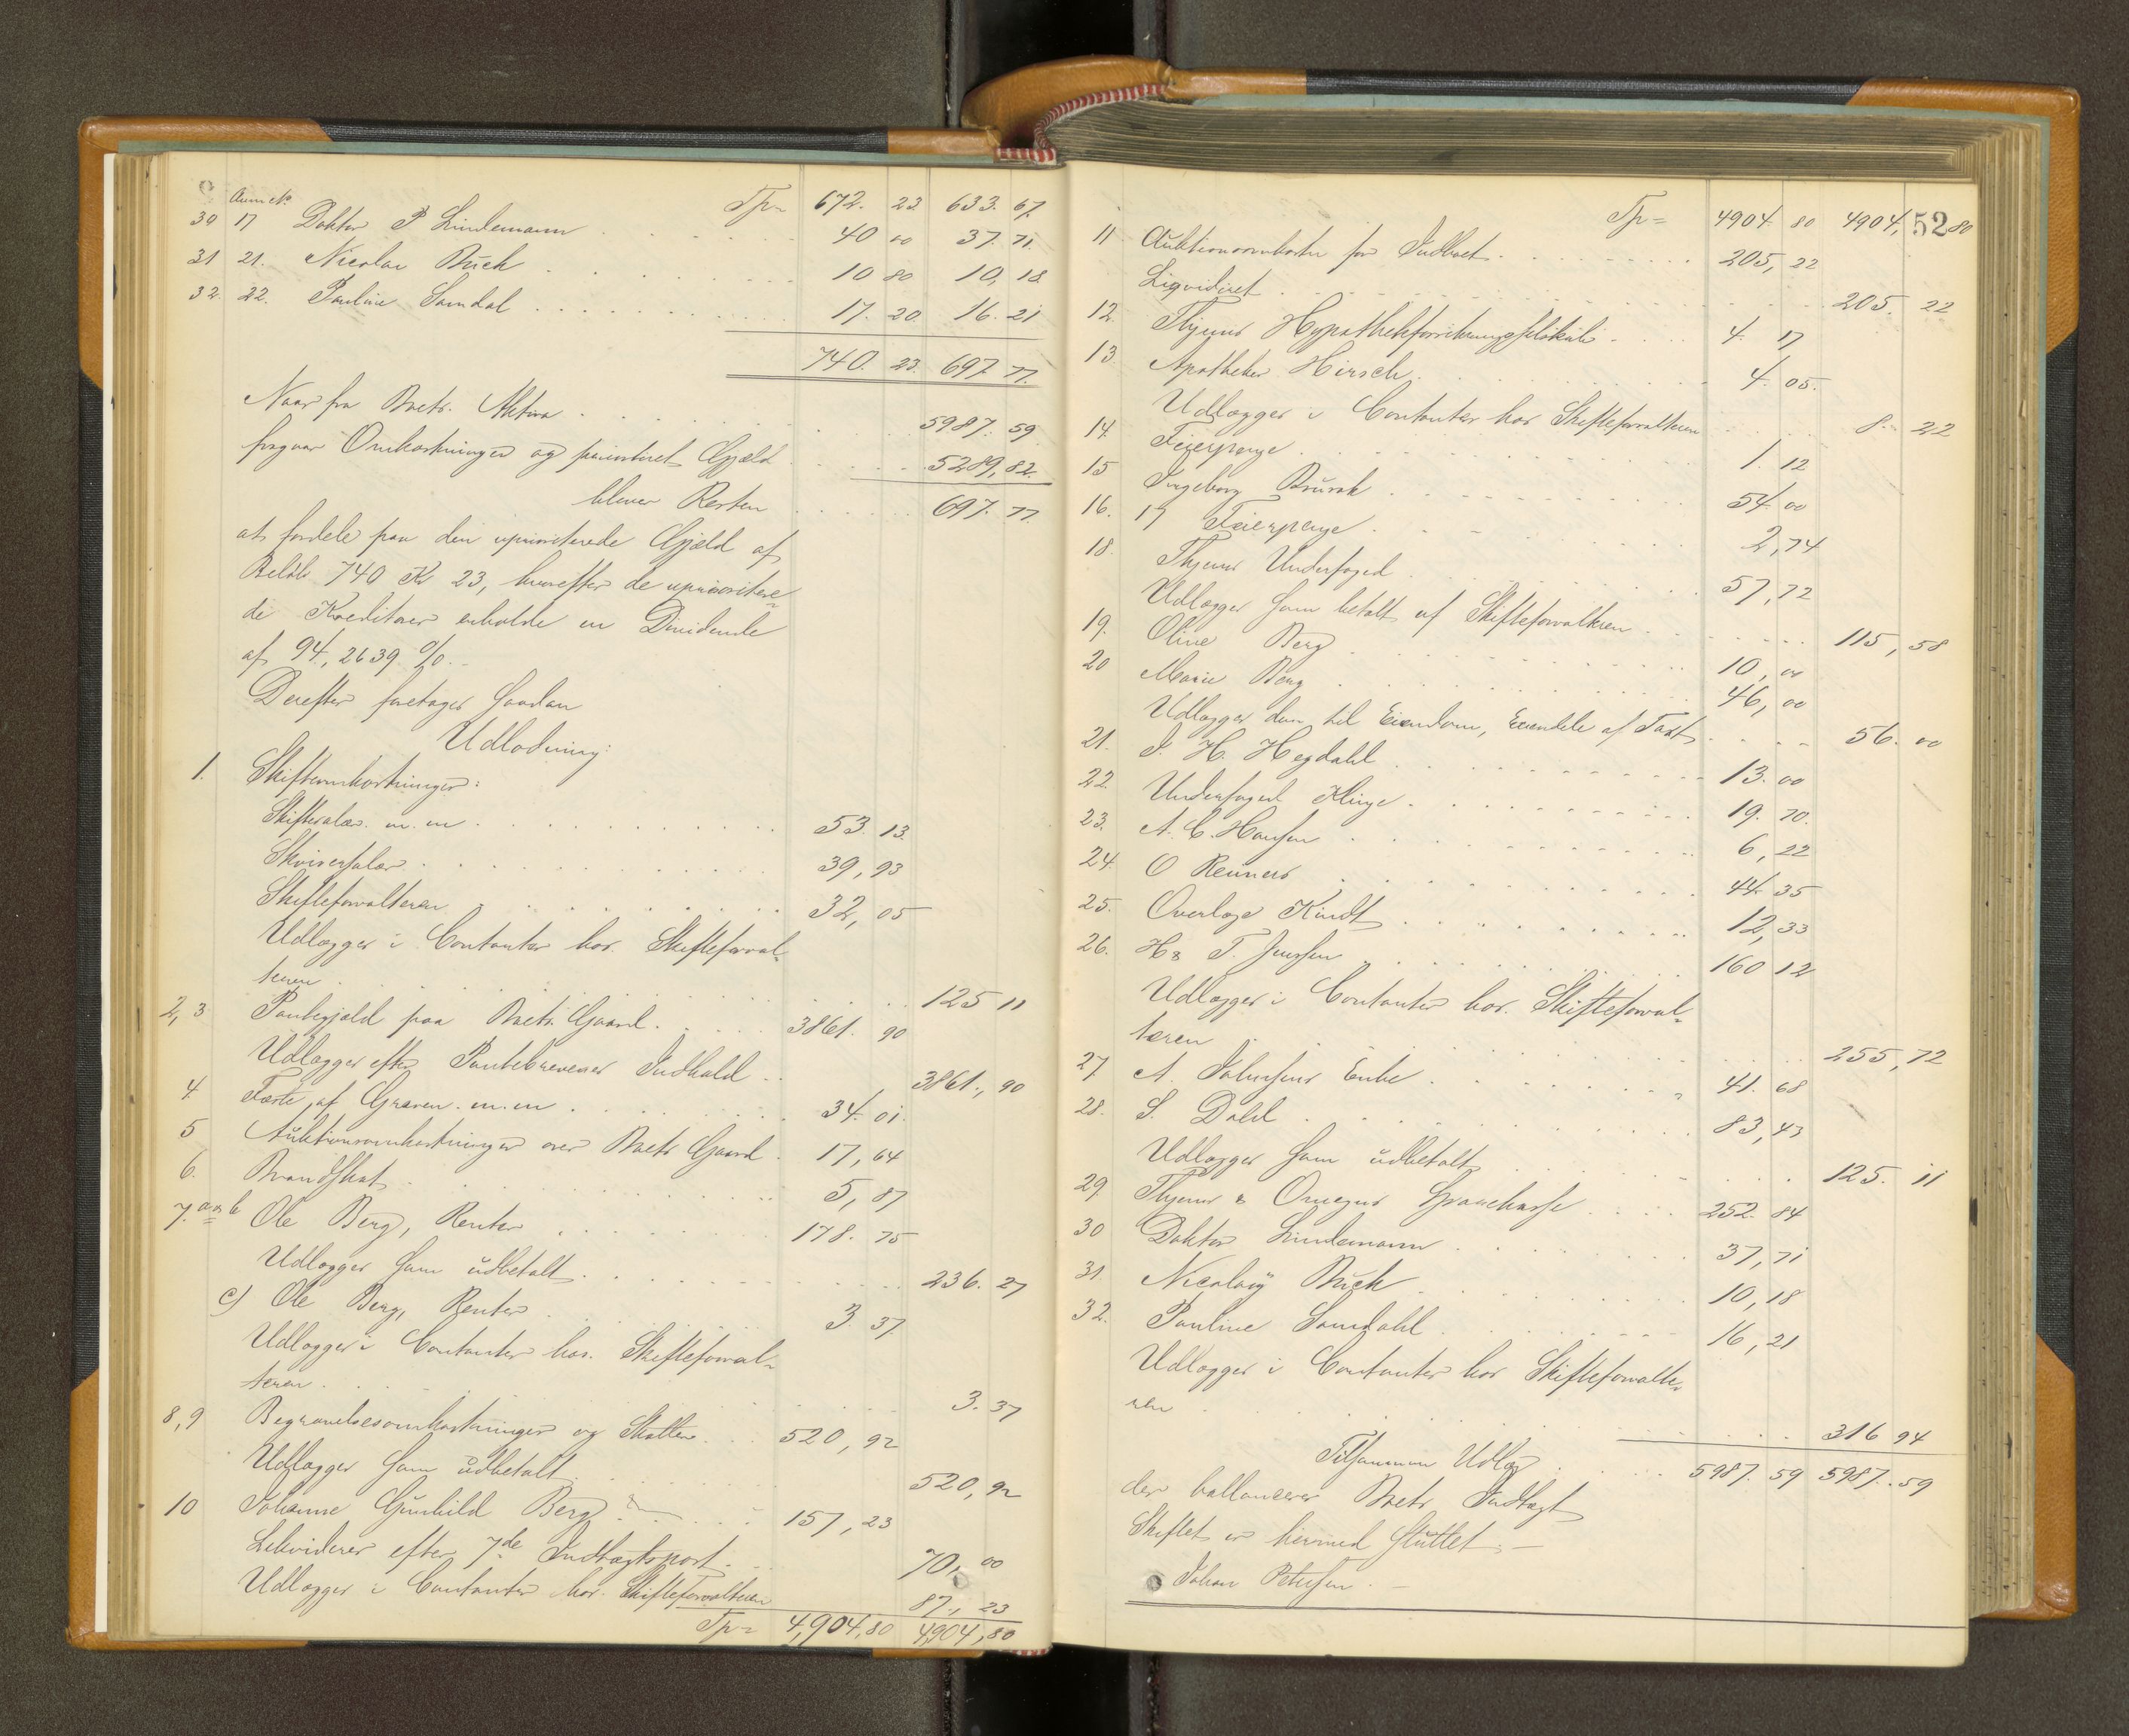 Anm. No
Tp= 672. 23. 633. 67.
30 17 Doktor P Lindemann 40 00 37. 71.
31 21. Nicolai Buch 10 80 10, 18.
32. 22. Pauline Samdal 17. 20. 16. 21
740. 23. 697. 77.
Naar fra Boets Aktiva 5987. 59
fragaar Omkostninger og prioriteret Gjæld 5289, 82.
bliver Resten 697. 77.
at fordele paa den uprioriterede Gjæld af
Beløb 740 Kr 23, hvorefter de uprioritere-
de Kreditorer erholde en Dividende
af 94,2639 %.
Derefter foretages saadan
Udlodning:
1. Skifteomkostninger:
Skiftesalær m. m 53. 13.
Skriversalær 39, 93
Skifteforvalteren 32, 05
Udlægges i Contanter hos Skifteforval-
teren 125 11
2, 3. Pantegjæld paa Boets Gaard. 3861. 90
Udlægges efter Pantebrevenes Indhold 3861., 90
4. Fæste af Graven m. m 34. 01.
5 Auktionsomkostninger over Boets Gaard 17, 64
6. Brandskat 5, 87
7. a og b Ole Berg, Renter 178. 75
Udlægges som udbetalt 236. 27
c) Ole Berg, Renter 3. 37.
Udlægges i Contanter hos Skifteforval-
teren 3. 37
8, 9 Begravelsesomkostninger og Skatter 520, 92
Udlægges som udbetalt 520, 92
10 Johanne Gunhild Berg 157, 23
Likviderer efter 7de Indtægtspost 70, 00
Udlægges i Contanter hos Skifteforvalteren 87., 23
Tp= 4,904,80 4,904,80
52
Tp= 4904. 80 4904, 80
11 Auktionsomkostn for Indboet 205, 22
Liqvidiret 205. 22
12. Thjems Hypothekforsikringsselskab 4. 17
13. Apotheker Hirsch 4. 05.
Udlægges i Contanter hos Skifteforvalteren 8. 22
14. Feierpenge 1. 12
15 Ingeborg Brurok 54. 00
16. 17 Feierpenge 2, 74
18. Thjems Underfoged 57, 72
Udlægges som betalt af Skifteforvalteren 115, 58
19. Oline Berg 10, 00
20 Marie Berg 46, 00
Udlægges dem til Eiendom, Eiendele af Taxt 56. 00
21. J. H. Hegdahl 13. 00
22. Underfoged Klinge 19. 70.
23. A. C. Hansen 6, 22
24. O Renners 44. 35
25. Overlæge Kindt 12, 33
26. H & T. Jenssen 160 12
Udlægges i Contanter hos Skifteforval-
teren 255, 72
27 A. Johnsens Enke 41. 68
28. S. Dahl 83, 43
Udlægges som udbetalt 125. 11
29. Thjems & Omegns Sparekasse 252. 84
30 Doktor Lindemann 37, 71
31. Nicolay Buch 10, 18
32. Pauline Samdahl 16, 21
Udlægges i Contanter hos Skifteforvalte-
ren 316 94
Tilsammen Udlæg 5987. 59 5987. 59
der ballancerer Boets Indtægt
Skiftet er hermed sluttet. —
Johan Petersen. —